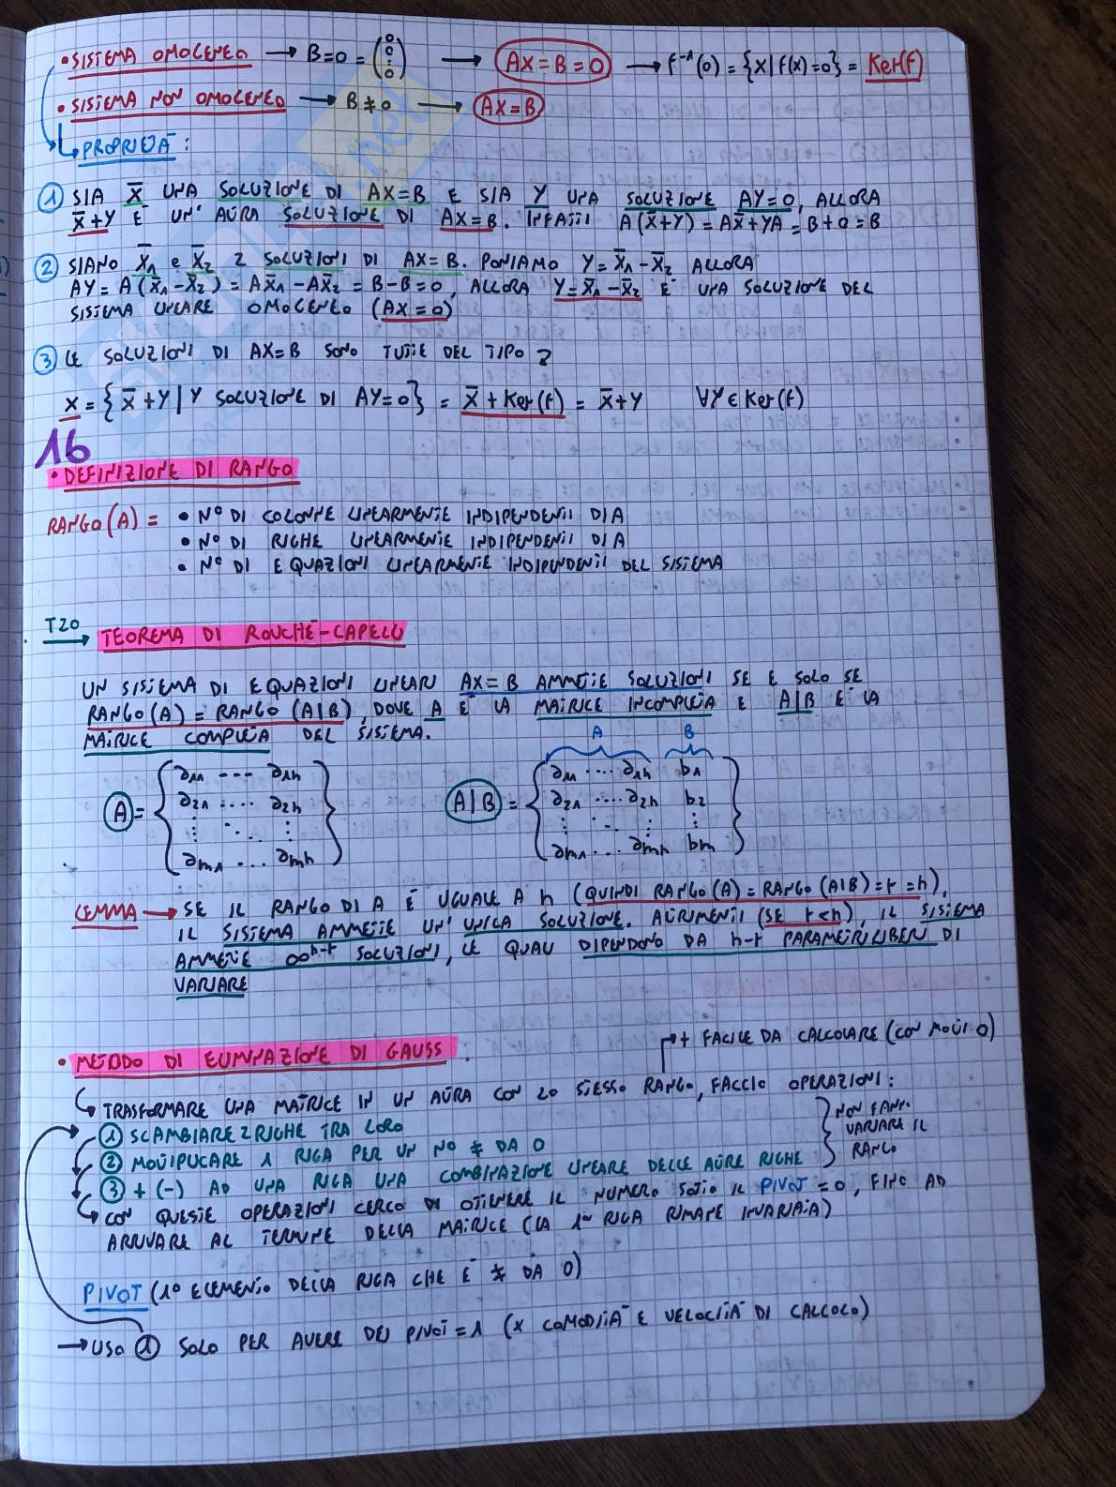 • SISTEMA OMOGENEO → B=0 = (0 0 0 ⋮ 0) → AX=B=0 → f⁻¹(0) = {X | f(X)=0} = Ker(f)
• SISTEMA NON OMOGENEO → B≠0 → AX=B
PROPRIETÀ:
① SIA X̄ UNA SOLUZIONE DI AX=B E SIA Y UNA SOLUZIONE AY=0, ALLORA
X̄+Y È UN'ALTRA SOLUZIONE DI AX=B. INFATTI A(X̄+Y) = AX̄+YA = B+0 = B
② SIANO X̄₁ e X̄₂ 2 SOLUZIONI DI AX=B. PONIAMO Y=X̄₁-X̄₂ ALLORA
AY = A(X̄₁-X̄₂) = AX̄₁-AX̄₂ = B-B=0, ALLORA Y=X̄₁-X̄₂ È UNA SOLUZIONE DEL
SISTEMA LINEARE OMOGENEO (AX=0)
③ LE SOLUZIONI DI AX=B SONO TUTTE DEL TIPO 2
X = {X̄+Y | Y SOLUZIONE DI AY=0} = X̄+Ker(f) = X̄+Y ∀Y∈Ker(f)
16
• DEFINIZIONE DI RANGO
RANGO(A) = • N° DI COLONNE LINEARMENTE INDIPENDENTI DI A
• N° DI RIGHE LINEARMENTE INDIPENDENTI DI A
• N° DI EQUAZIONI LINEARMENTE INDIPENDENTI DEL SISTEMA
T20
→ TEOREMA DI ROUCHÉ-CAPELLI
UN SISTEMA DI EQUAZIONI LINEARI AX=B AMMETTE SOLUZIONI SE E SOLO SE
RANGO(A) = RANGO(A|B), DOVE A È LA MATRICE INCOMPLETA E A|B È LA
MATRICE COMPLETA DEL SISTEMA.
A B
a₁₁ ... a₁n a₁₁ ... a₁n b₁
A = a₂₁ .... a₂n A|B = a₂₁ .... a₂n b₂
⋮ ⋱ ⋮ ⋮ ⋱ ⋮ ⋮
am₁ ... amn am₁ ... amn bm
LEMMA → SE IL RANGO DI A È UGUALE A n (QUINDI RANGO(A) = RANGO(A|B) = r = n),
IL SISTEMA AMMETTE UN'UNICA SOLUZIONE. ALTRIMENTI (SE r<n), IL SISTEMA
AMMETTE ∞ⁿ⁻ʳ SOLUZIONI, LE QUALI DIPENDONO DA n-r PARAMETRI LIBERI DI
VARIARE
• METODO DI ELIMINAZIONE DI GAUSS
+ FACILE DA CALCOLARE (CON MOLTI 0)
↳ TRASFORMARE UNA MATRICE IN UN ALTRA CON LO STESSO RANGO, FACCIO OPERAZIONI:
① SCAMBIARE 2 RIGHE TRA LORO
② MOLTIPLICARE 1 RIGA PER UN NO ≠ DA 0
③ +(-) AD UNA RIGA UNA COMBINAZIONE LINEARE DELLE ALTRE RIGHE
NON FANNO
VARIARE IL
RANGO
↳ CON QUESTE OPERAZIONI CERCO DI OTTENERE IL NUMERO SOTTO IL PIVOT =0, FINO AD
ARRIVARE AL TERMINE DELLA MATRICE (LA 1ª RIGA RIMANE INVARIATA)
PIVOT (1° ELEMENTO DELLA RIGA CHE È ≠ DA 0)
→ USO ① SOLO PER AVERE DEI PIVOT=1 (X COMODITÀ E VELOCITÀ DI CALCOLO)